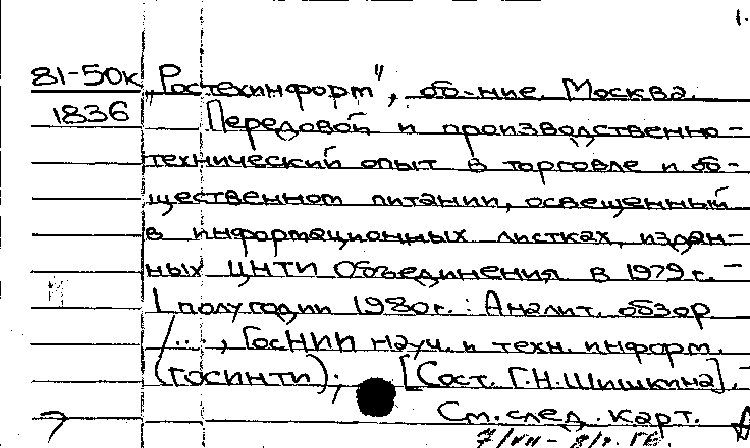 1.
81-50к „Ростехинформ", об-ние. Москва.
1836 Передовой и производственно-
технический опыт в торговле и об-
щественном питании, освещенный
в информационных листках, издан-
ных ЦНТИ Объединения в 1979 г. -
I полугодии 1980 г. : Аналит. обзор
/..., ГосНИИ науч. и техн. информ.
(ГОСИНТИ); [Сост. Г.Н. Шишкина]. -
См. след. карт.